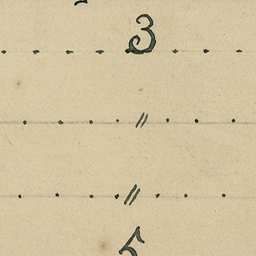 . . . . 3 . . .
. . . . " . . .
. . . . " . . .
5